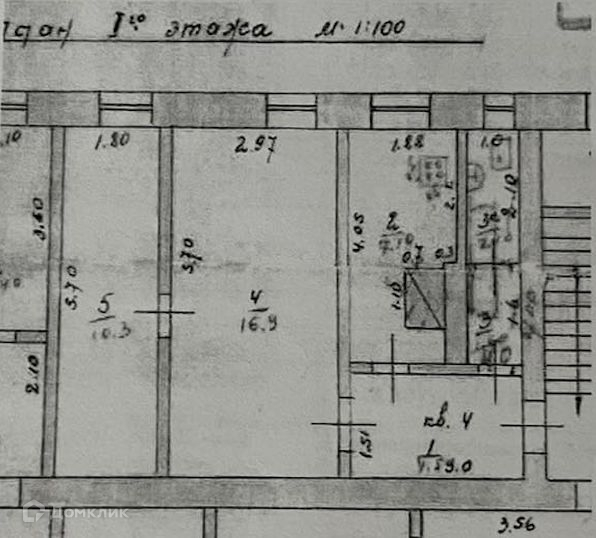 План I го этажа М 1:100
1.80
2.97
1.88
1.0
3.60
5.70
5.70
4.05
2.10
2
7.10
0.7
0.3
1.10
5
10.3
4
16.9
2.10
1.51
кв. 4
1
3.56
Домклик